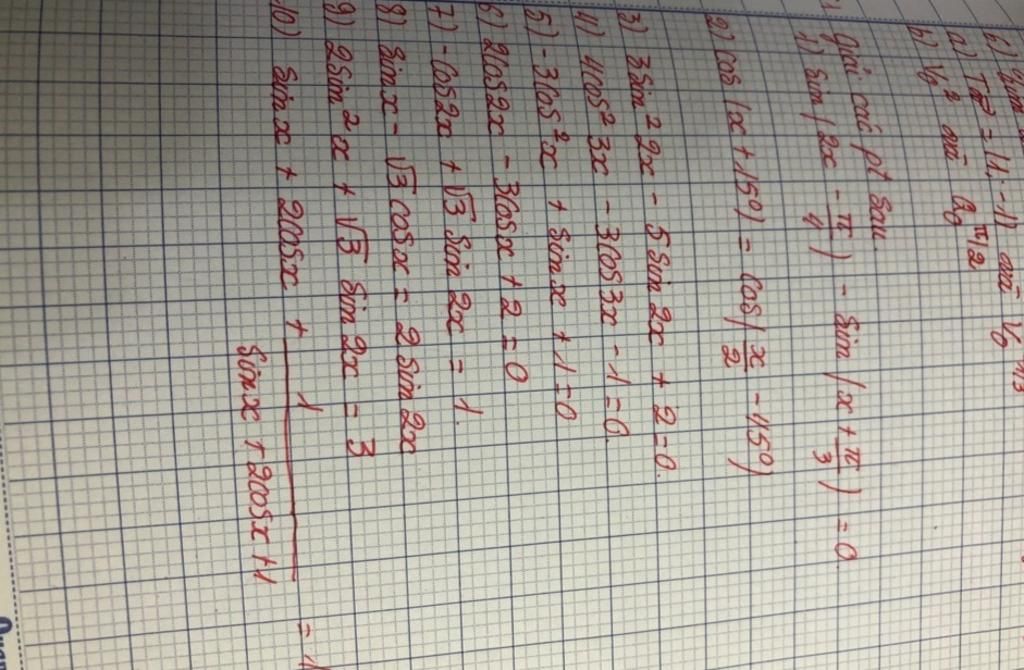 a) Tv⃗ = (1, -1) và V₀
b) V₀² và Q₀^π/2
giải các pt sau.
1) sin(2x - π/4) - sin(x + π/3) = 0
2) cos(x + 15⁰) = cos(x/2 - 45⁰)
3) 3sin²2x - 5sin2x + 2 = 0.
4) 4cos²3x - 3cos3x - 1 = 0.
5) -3cos²x + sinx + 1 = 0
6) 2cos2x - 3cosx + 2 = 0
7) -cos2x + √3 sin2x = 1.
8) sinx - √3cosx = 2sin2x
9) 2sin²x + √3 sin2x = 3
10) sinx + 2cosx + 1/(sinx + 2cosx + 1) = 1